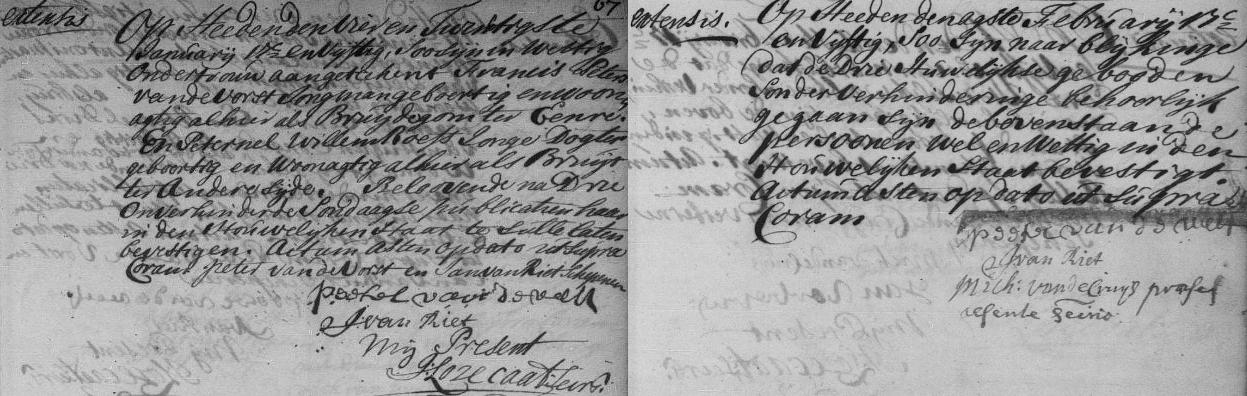 extensis
67
Op Heeden den vier en Twentigste
Januarij 17c en Vijftig, Soo Sijn in Wettig
Ondertrouw aangetekent Francis Peter
vande Vorst Jongman geboortig en woon
agtig alhier als Bruijdegom ter Eenre.
En Peternel Willem Roefs Jonge Dogter
geboortig en Woonagtig alhier als Bruijt
ter Andere sijde. Beloovende na Drie
Onverhinderde Sondaagse publicatien haar
in den Houwelijken Staat te Sulle laten
bevestigen. Actum Asten op dato ut Supra
Coram peter vande Vorst en Jan van Riet Schepenen
peeter van de
J van Riet
Mij Present
extensis.
Op Heeden den agste Februarij 17c
en Vijftig, Soo Sijn naar blijkinge
dat de Drie Huwelijkse gebooden
Sonder Verhinderinge behoorlijk
gegaan Sijn de bovenstaande
persoonen Wel en Wettig in den
Houwelijken Staat bevestigt.
Actum Asten op dato ut Supra
Coram
peeter van de
J van Riet
Mich: vande Cruijs